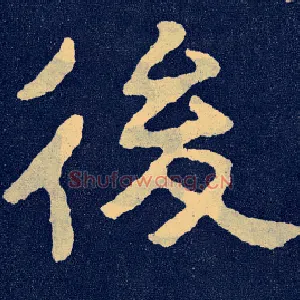 後
Shufawang.CN